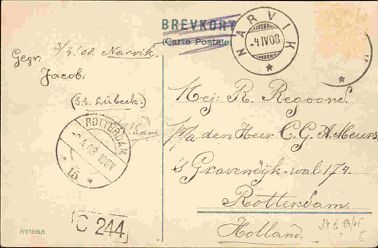 BREVKORT
(Carte Postale)
NARVIK
-4 IV 08
3/4 '08. Narvik
Jacob:
(s.s. Lübeck.)
ROTTERDAM
4.08
15
C 244
Hej: R.
p/a den Heer C. G. A. Meurs,
's Gravendijk-wal 174
Rotterdam
Holland.